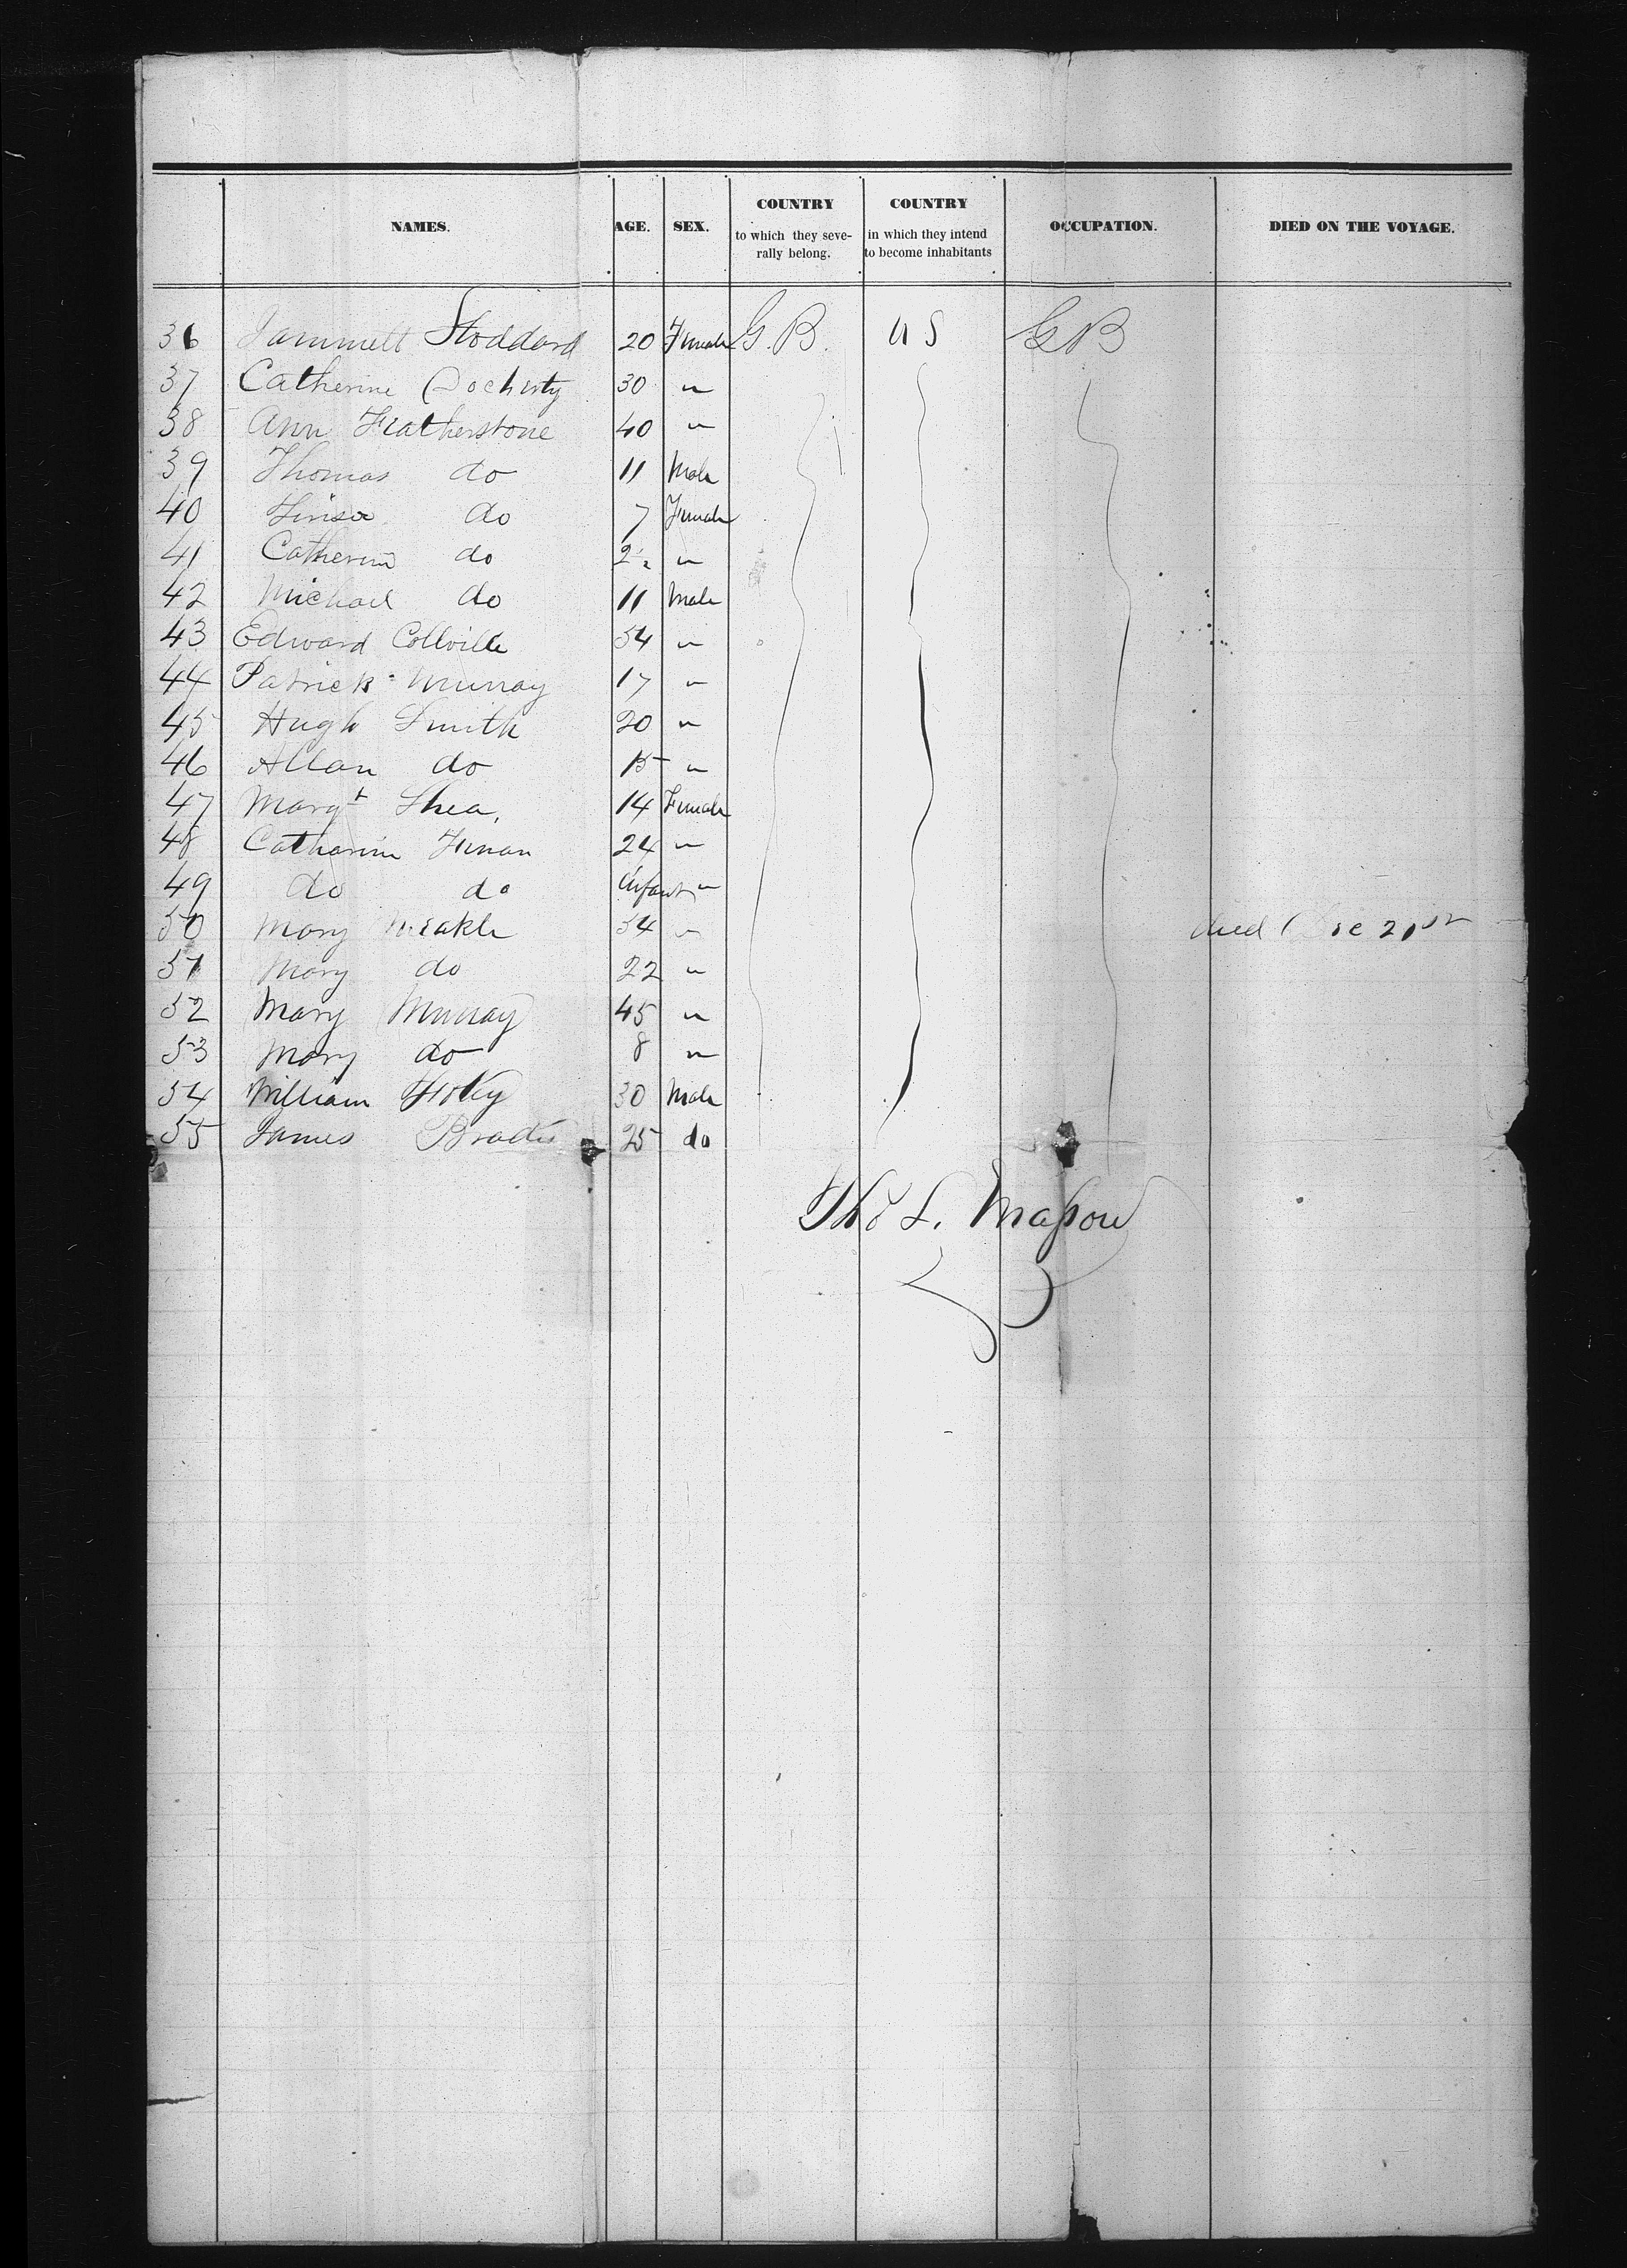 NAMES. AGE. SEX. COUNTRY to which they seve- rally belong. COUNTRY in which they intend to become inhabitants OCCUPATION. DIED ON THE VOYAGE.
36 Stoddard 20 Female G.B. U S G B
37 Catherine Docherty 30 "
38 Ann Featherstone 40 "
39 Thomas do 11 Male
40 do 7 Female
41 Catherine do 2½ "
42 Michael do 11 Male
43 Edward Collville 54 "
44 Patrick Murray 17 "
45 Hugh Smith 20 "
46 Allan do 15 "
47 Margt Shea, 14 Female
48 Catharine 24 "
49 do do infant "
50 Mary Meakle 54 " died Dec 21st
51 Mary do 22 "
52 Mary Murray 45 "
53 Mary do 8 "
54 William 30 Male
55 James 25 do
Tho L. Masson